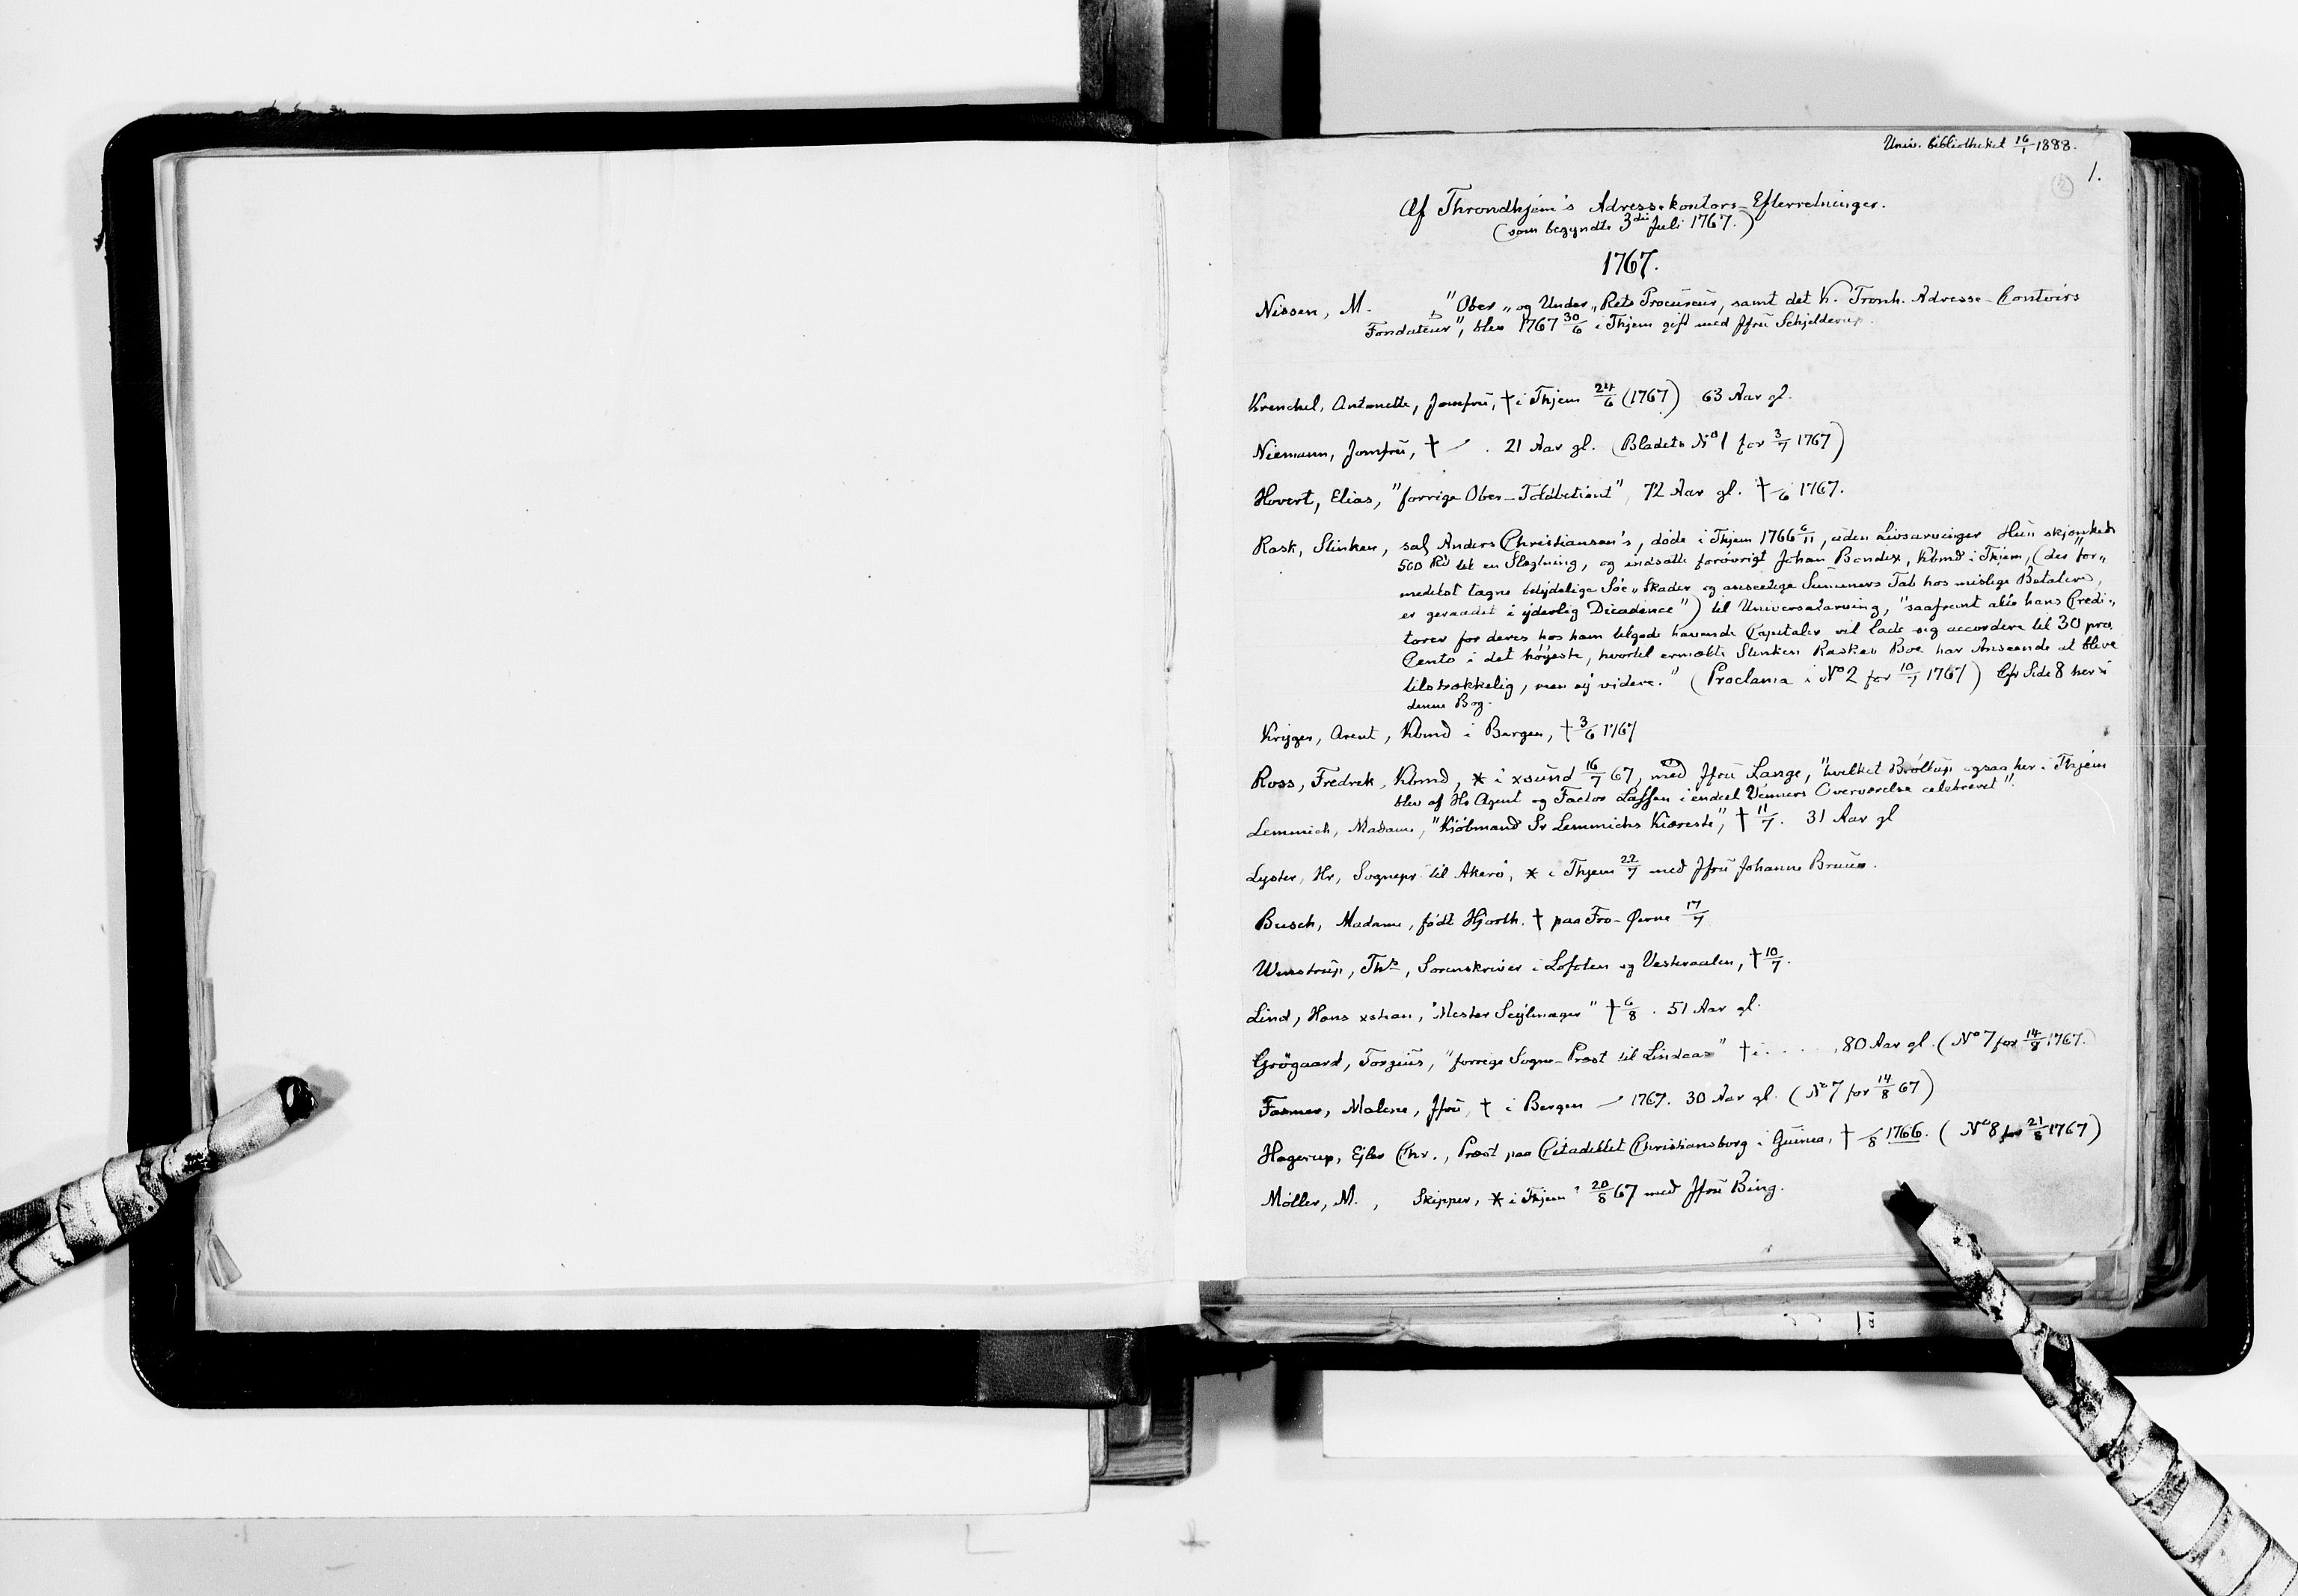 Univ. bibliotheket 16/1 1888.
1.
(2)
Af Throndhjem's Adressekontors-Efterretninger.
(som begyndte 3die Juli 1767.)
1767.
Nissen, M. "Ober„ og Under„Rets Procureur, samt det K. Tronh. Adresse-Contoirs
Fondateur", blev 1767 30/6 i Thjem gift med Jfru Schjelderup.
Krenchel, Antonette, Jomfru, † i Thjem 24/6 (1767) 63 Aar gl.
Niemann, Jomfru, † . 21 Aar gl. (Bladets No 1 for 3/7 1767)
Hovert, Elias, "forrige Ober-Toldbetient" 72 Aar gl. † /6 1767.
Rask, Stinken, sal Anders Christiansen's, døde i Thjem 1766 6/11, uden Livsarvinger Hun skjænkede
500 Rd til en Slægtning, og indsatte forøvrigt Johan Bendix, Kbmd i Thjem, (der "for„
medelst tagne betydelige Søe„Skader og anseelige Summers Tab hos mislige Betalere,
er geraadet i yderlig Dicadence") til Universalarving, "saafremt alle hans Credi„
torer for deres hos ham tilgode havende Capitaler vil lade sig accordere til 30 pro
Cento i det høyeste, hvortil ermeldte Stinken Raskes Boe har Anseende at blive
tilstrækkelig, men ey videre." (Proclama i No 2 for 10/7 1767) Cfr Side 8 her i
denne Bog.
Kryger, Arent, Kbmd i Bergen, † 3/6 1767
Ross, Fredrek, Kbmd, * i xsund 16/7 67, med Jfru Lange, "hvilket Brøllup ogsaa her i Thjem
blev af Hr Agent og Factor Lassen i endeel Venners Overværelse celebreret".
Lemmich, Madame, "Kjøbmand Sr Lemmichs Kiæreste", † 11/7. 31 Aar gl
Lyster, Hr, Sognepr til Akerø, * i Thjem 22/7 med Jfru Johanne Bruus.
Busch, Madame, født Hjorth. † paa Fro-Øerne 17/7
Winstrup, Ths, Sorenskriver i Lofoten og Vesteraalen, † 10/7.
Lind, Hans xstian, "Mester Seylmager" † 6/8. 51 Aar gl.
Grøgaard, Torgius, "forrige Sogne-Præst til Lindaas" † i . . . . , 80 Aar gl. (No 7 for 14/8 1767.)
Fasmer, Malene, Jfru, † i Bergen 1767. 30 Aar gl. (No 7 for 14/8 67)
Hagerup, Ejler Chr., Præst paa Citadellet Christiansborg i Guinea, † /8 1766. (No 8 for 21/8 1767)
Møller, M., Skipper, * i Thjem 20/8 67 med Jfru Bing.